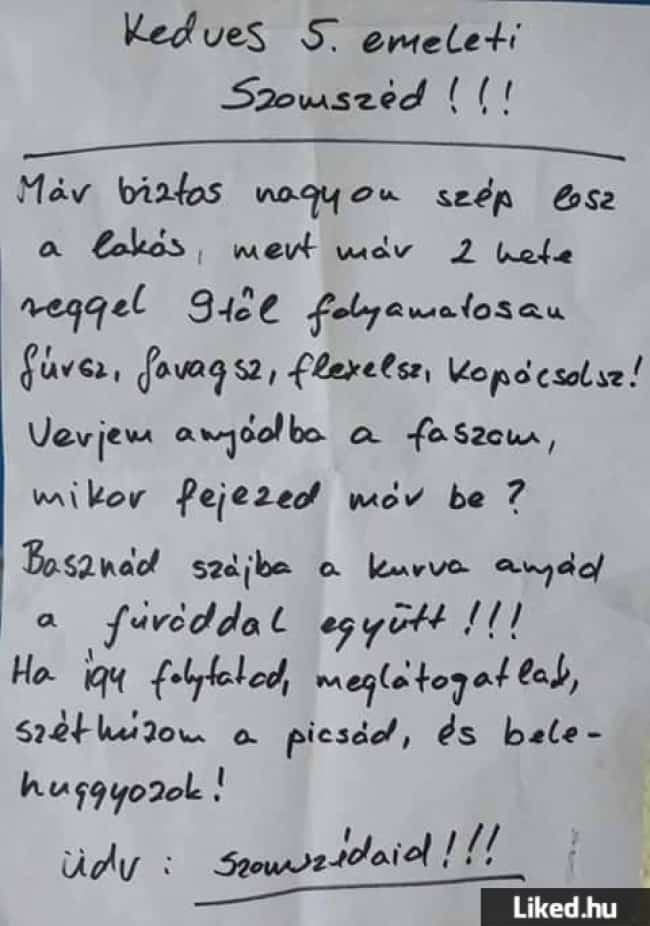 Kedves 5. emeleti
Szomszéd!!!
Már biztos nagyon szép lesz
a lakás, mert már 2 hete
reggel 9től folyamatosan
fúrsz, favagsz, flexelsz, kopácsolsz!
Verjem anyádba a faszom,
mikor fejezed már be?
Basznád szájba a kurva anyád
a fúróddal együtt!!!
Ha így folytatod, meglátogatlak,
széthúzom a picsád, és bele-
huggyozok!
üdv: szomszédaid!!!
Liked.hu